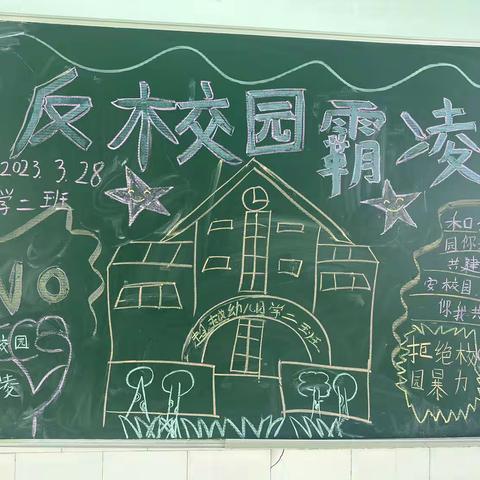 反校园霸凌
2023.3.28
学二班
NO
校园
凌
幼儿园学二班
和
园你
共建
安校园
你我共
拒绝校
园暴力